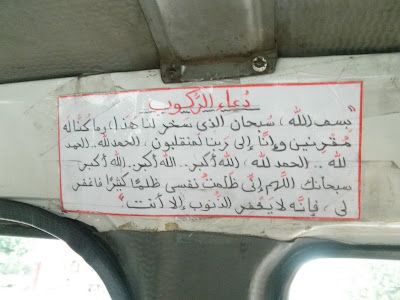 دُعاء الرَّكوب
"بسم الله، سُبحان الذى سخر لنا هَذا، وما كنَّا لَه
مُقرنين وإنَّا إلى رَبنا لمنقلبون، الحمدلله.. الحمد
لله .. الحمد لله، الله أكبر.. الله أكبر.. الله أكبر
سبحانك اللَّهم إنَّى ظَلمتُ نفسى ظلمًا كثيرًا فاغفر
لى، فإنَّه لا يَغفر الذُنوب إلا أنت"